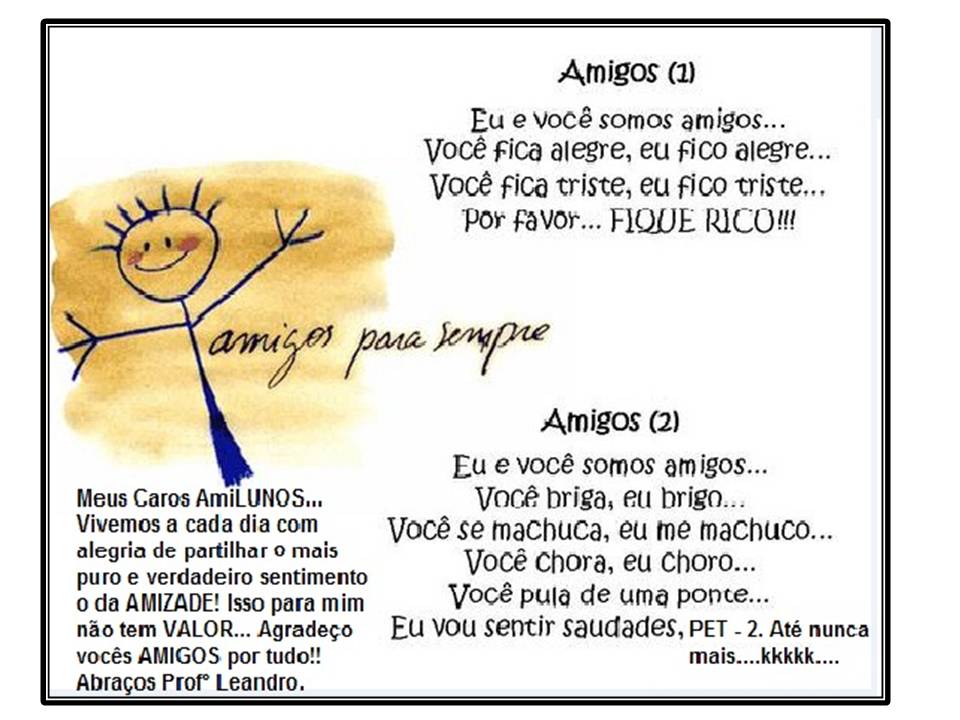 Amigos (1)
Eu e você somos amigos...
Você fica alegre, eu fico alegre...
Você fica triste, eu fico triste...
Por favor... FIQUE RICO!!!
amigos para sempre
Amigos (2)
Eu e você somos amigos...
Você briga, eu brigo...
Você se machuca, eu me machuco...
Você chora, eu choro...
Você pula de uma ponte...
Eu vou sentir saudades, PET - 2. Até nunca
mais....kkkkk....
Meus Caros AmiLUNOS...
Vivemos a cada dia com
alegria de partilhar o mais
puro e verdadeiro sentimento
o da AMIZADE! Isso para mim
não tem VALOR... Agradeço
vocês AMIGOS por tudo!!
Abraços Profº Leandro.